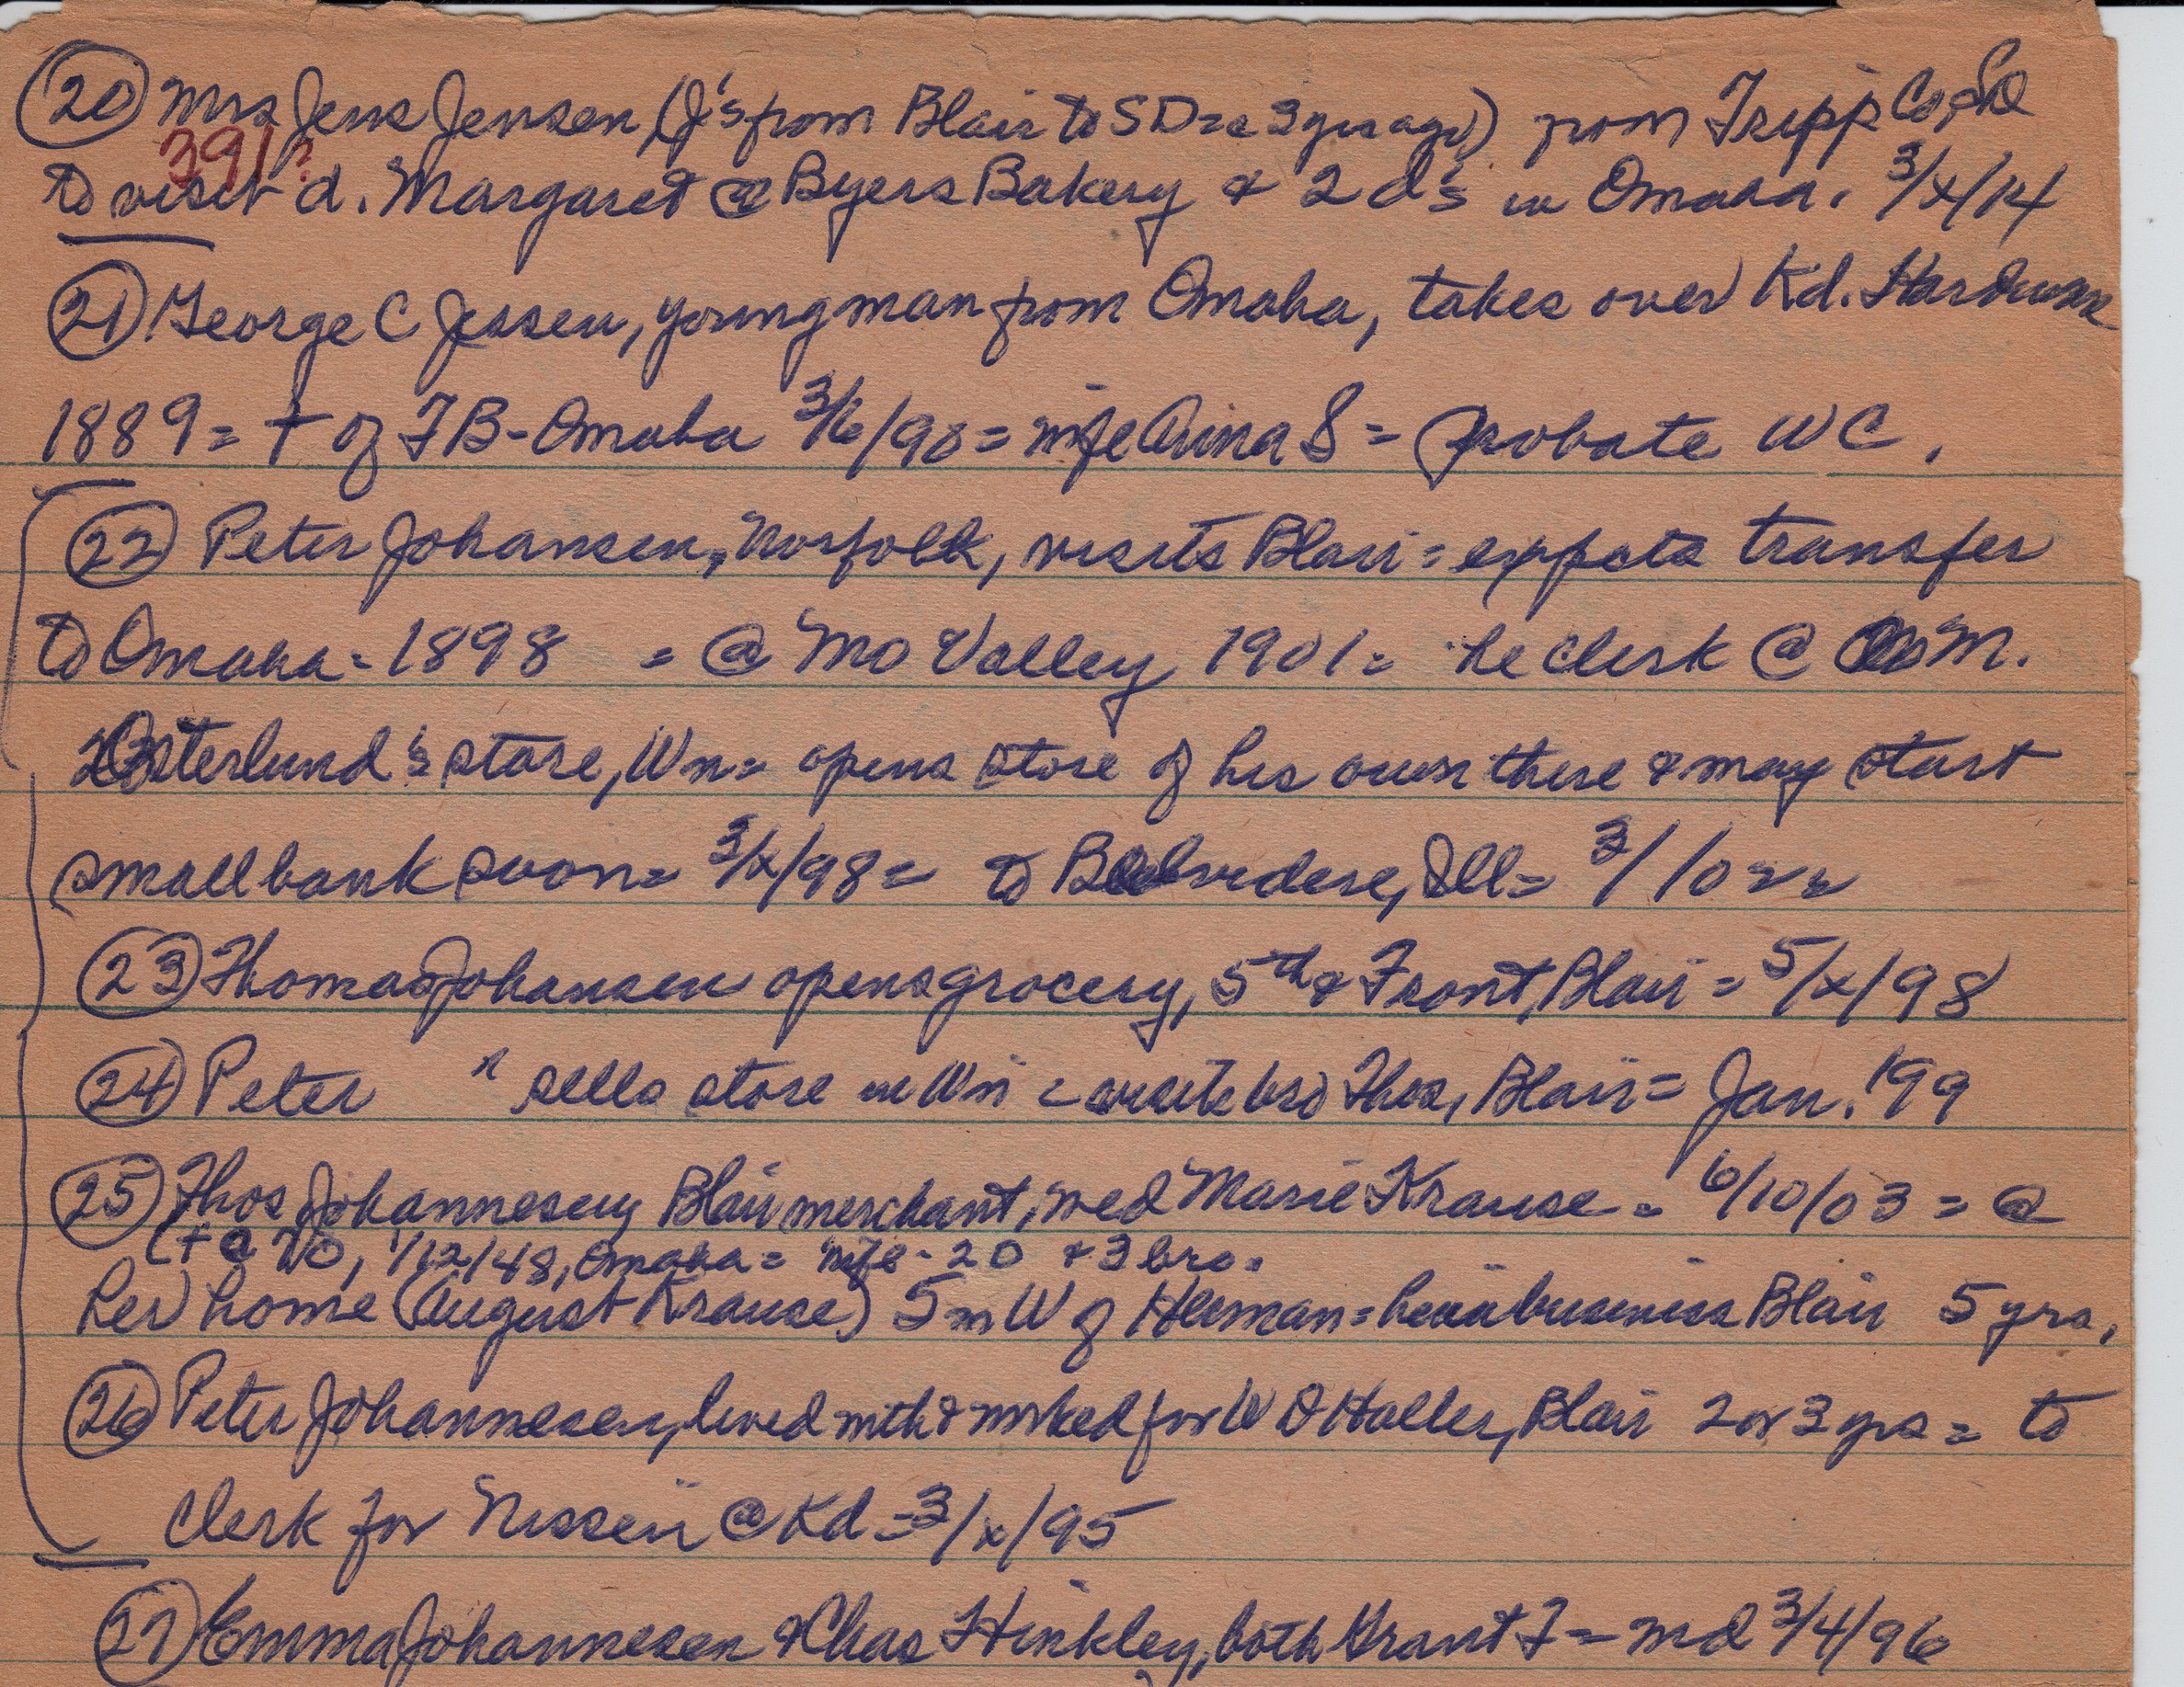 (20) Mrs Jens Jensen, (J's from Blair to SD = 3 yrs ago) from Tripp Co, SD
391?
to visit d. Margaret @ Byers Bakery & 2 d's in Omaha. 3/x/14
(21) George C Jessen, young man from Omaha, takes over Kd. Hardware
1889 = + of TB - Omaha 3/6/98 = wife Anna S = probate WC.
(22) Peter Johansen, Norfolk, visits Blair = expects transfer
to Omaha - 1898 = @ Mo Valley 1901 = he clerk @ M.
Osterlund's store, Wn = opens store of his own there & may start
small bank soon = 3/x/98 = to Belvidere, Ill = 3/10
(23) Thomas Johansen opens grocery, 5th & Front, Blair = 5/x/98
(24) Peter " sells store in Wn = visits bro Thos, Blair = Jan. '99
(25) Thos Johannesen, Blair merchant, wed Marie Krause = 6/10/03 = @
(+ @ 70, 1/12/48, Omaha = wife - 2D & 3 bro.
her home (August Krause) 5 m W of Herman = he in business Blair 5 yrs.
(26) Peter Johannesen, lived with & worked for W D Haller, Blair 2 or 3 yrs = to
clerk for Nissen @ Kd = 3/x/95
(27) Emma Johannesen & Chas Hinkley, both Grant T = md 3/4/96